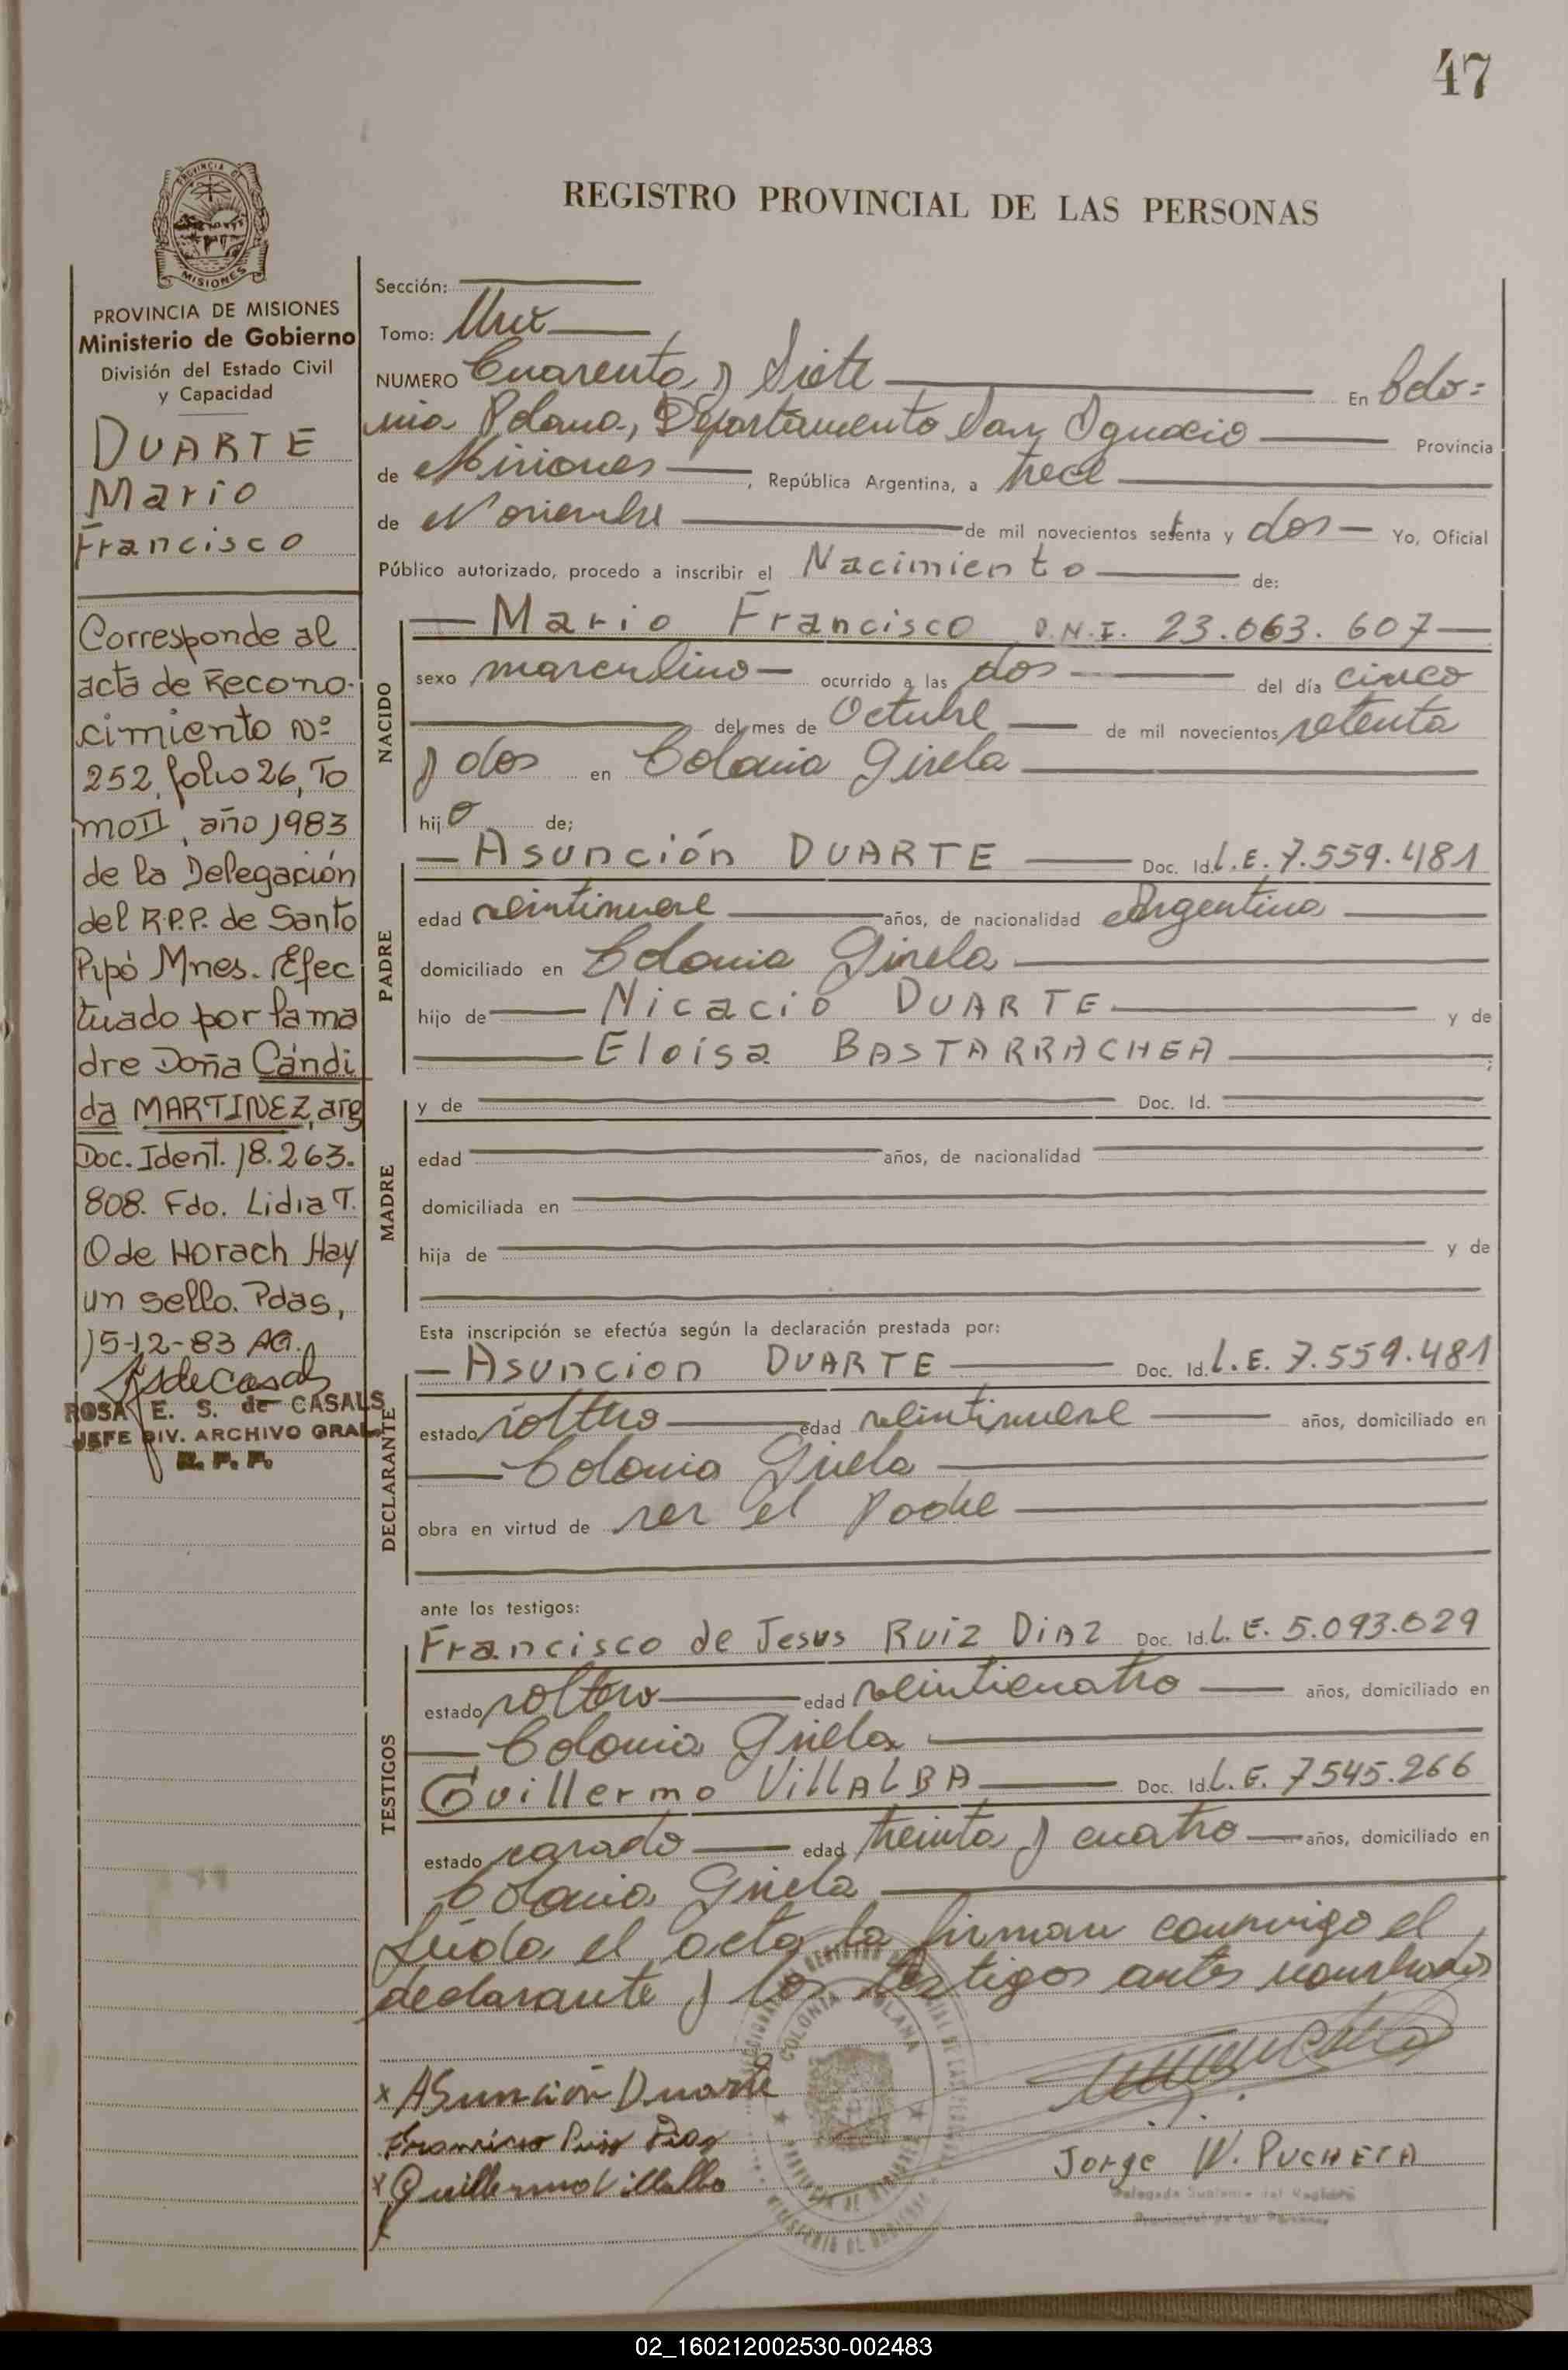 47
PROVINCIA DE
MISIONES
REGISTRO PROVINCIAL DE LAS PERSONAS
PROVINCIA DE MISIONES
Ministerio de Gobierno
División del Estado Civil
y Capacidad
DUARTE
Mario
Francisco
Corresponde al
acta de Recono-
cimiento Nº
252, folio 26, To
mo II, año 1983
de la Delegación
del R.P.P. de Santo
Pipó Mnes. Efec
tuado por la ma
dre Doña Cándi
da MARTINEZ, arg
Doc. Ident. 18.263.
808. Fdo. Lidia T.
O de Horach Hay
un sello. Pdas,
15-12-83 AG.
ROSA E. S. de CASALS
JEFE DIV. ARCHIVO GRAL
R. P. P.
Sección:
Tomo: Uno
NUMERO Cuarenta y Siete En Colo=
nia Polana, Departamento San Ignacio Provincia
de Misiones, República Argentina, a trece
de Noviembre de mil novecientos setenta y dos Yo, Oficial
Público autorizado, procedo a inscribir el Nacimiento de:
NACIDO
Mario Francisco D.N.I. 23.063.607
sexo masculino ocurrido a las dos del día cinco
del mes de Octubre de mil novecientos setenta
y dos en Colonia Gisela
hijo de;
PADRE
Asunción DUARTE Doc. Id. L.E. 7.559.481
edad veintinueve años, de nacionalidad Argentina
domiciliado en Colonia Gisela
hijo de Nicacio DUARTE y de
Eloisa BASTARRACHEA ;
MADRE
y de Doc. Id.
edad años, de nacionalidad
domiciliada en
hija de y de
Esta inscripción se efectúa según la declaración prestada por:
DECLARANTE
Asuncion DUARTE Doc. Id. L.E. 7.559.481
estado soltero edad veintinueve años, domiciliado en
Colonia Gisela
obra en virtud de ser el Padre
ante los testigos:
TESTIGOS
Francisco de Jesus RUIZ DIAZ Doc. Id. L.E. 5.093.029
estado soltero edad veinticuatro años, domiciliado en
Colonia Gisela
Guillermo VILLALBA Doc. Id. L.E. 7545.266
estado casado edad treinta y cuatro años, domiciliado en
Colonia Gisela
Leída el acta la firman conmigo el
declarante y los testigos antes nombrados
COLONIA POLANA
x Asunción Duarte
Francisco Ruiz Diaz
x Guillermo Villalba
Jorge W. PUCHETA
Delegado Suplente del Registro
Provincial de las Personas
02_160212002530-002483